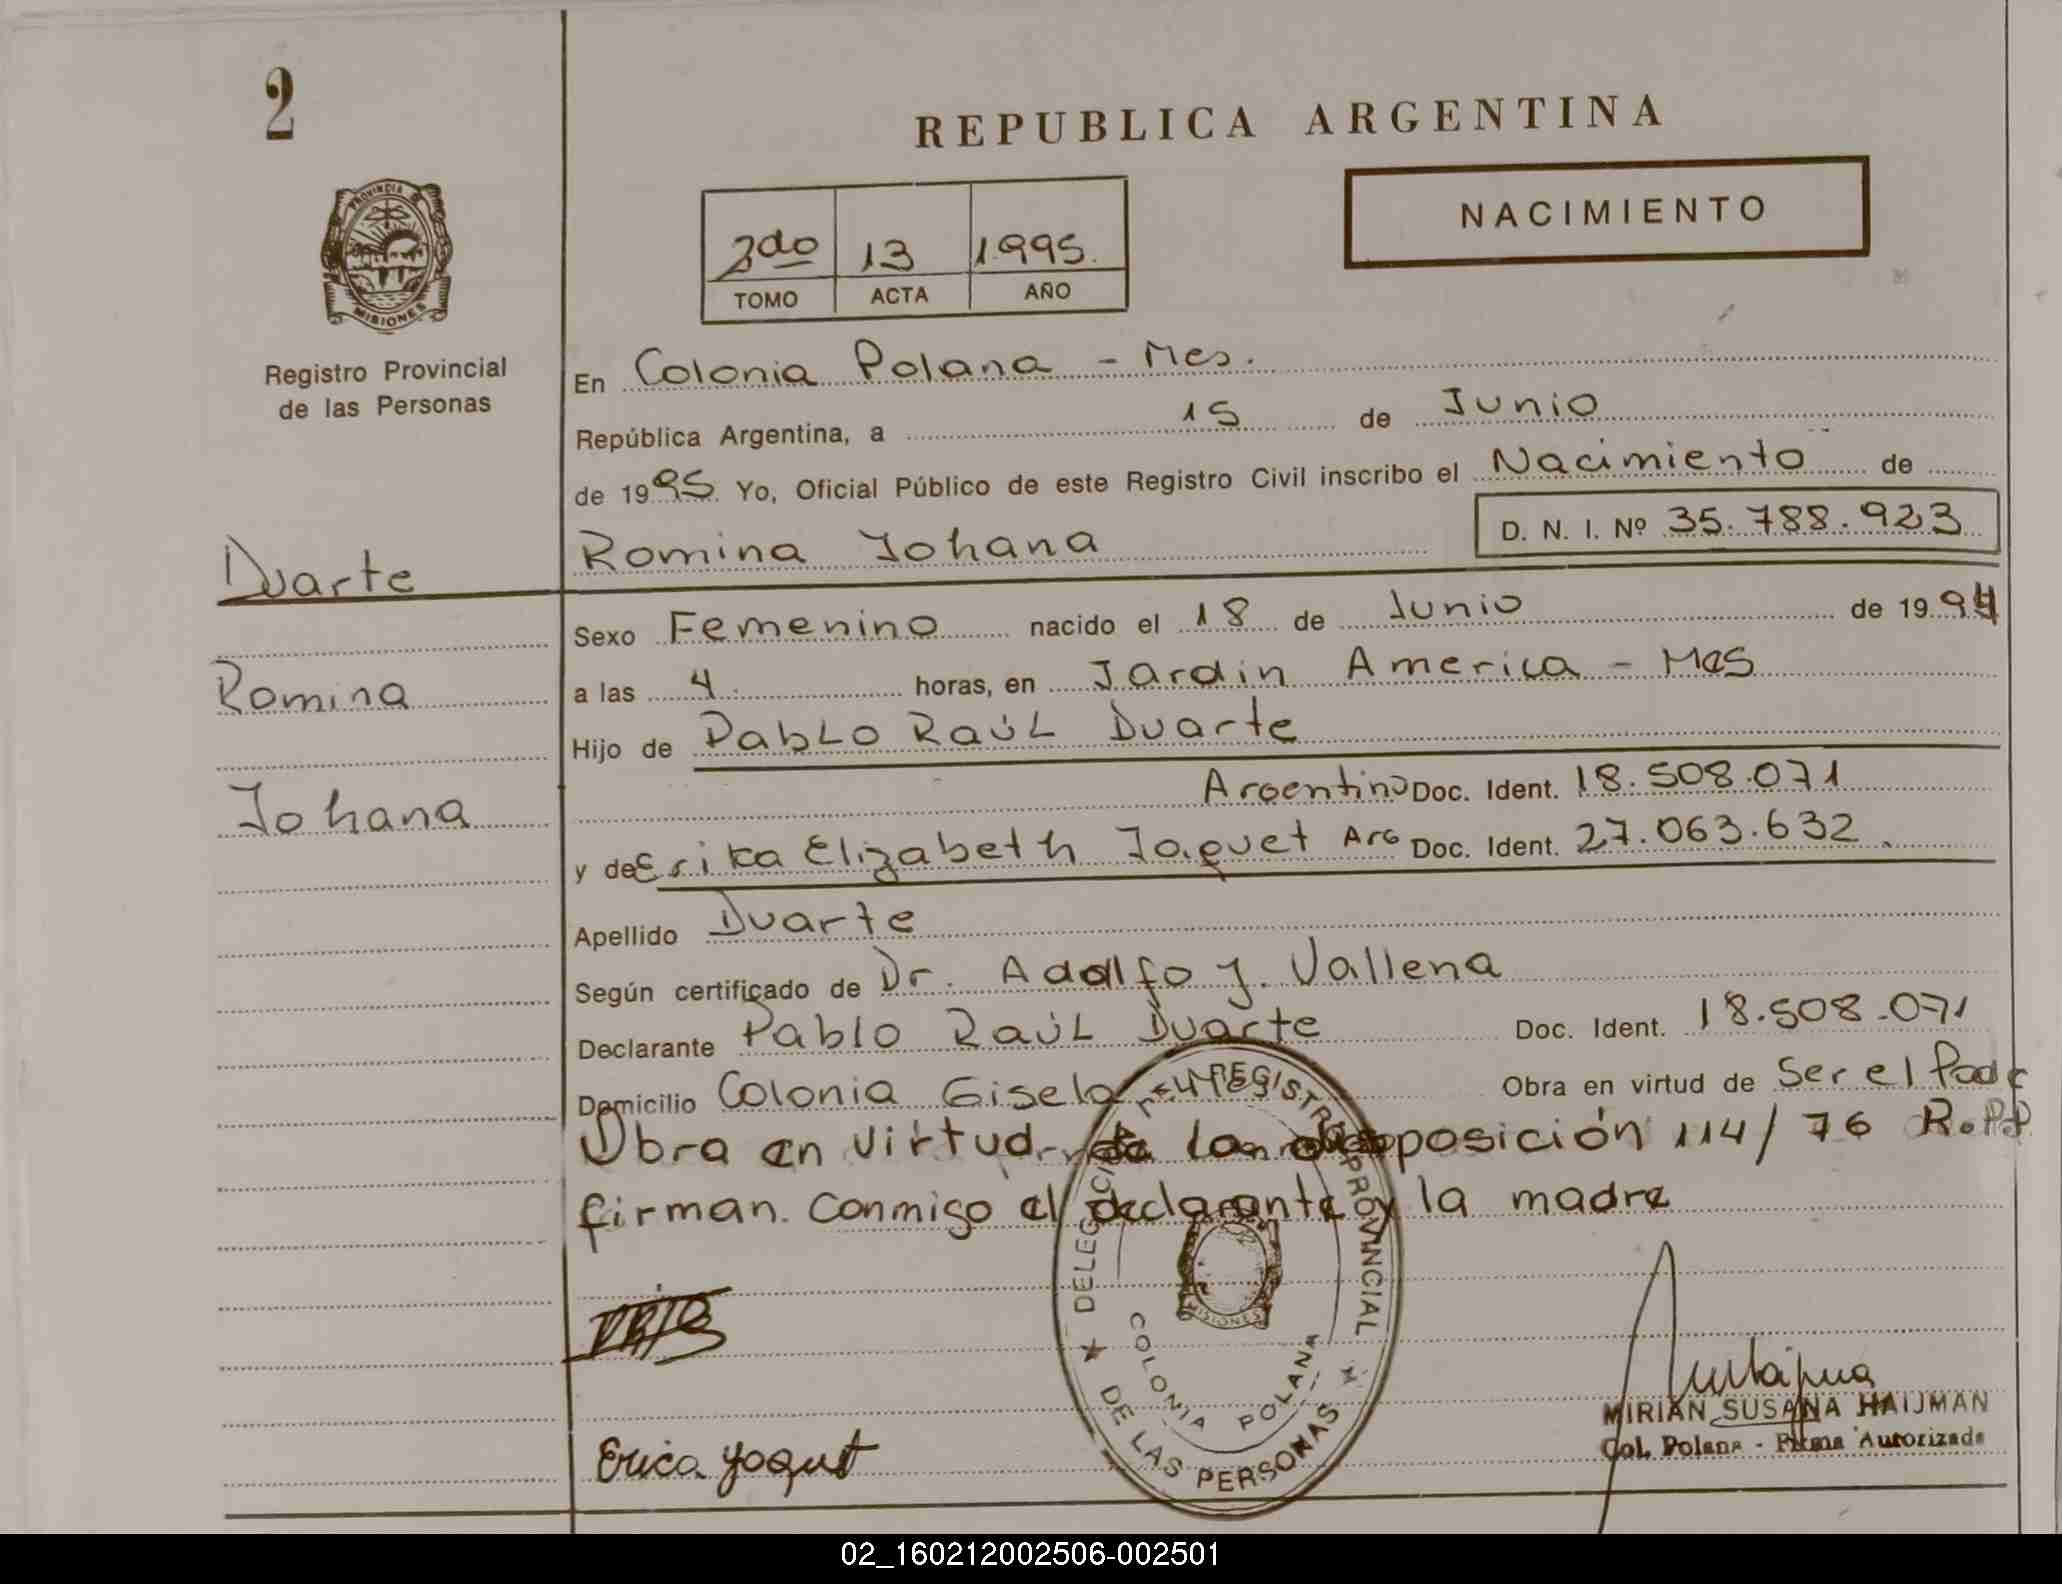 2
REPUBLICA ARGENTINA
NACIMIENTO
2do 13 1.995.
TOMO ACTA AÑO
PROVINCIA
MISIONES
Registro Provincial
de las Personas
En Colonia Polana - Mes.
República Argentina, a 15 de Junio
de 1995. Yo, Oficial Público de este Registro Civil inscribo el Nacimiento de
D. N. I. Nº 35.788.923
Romina Johana
Duarte
Romina
Johana
Sexo Femenino nacido el 18 de Junio de 1994
a las 4 horas, en Jardin America - Mes
Hijo de Pablo Raúl Duarte
Argentino Doc. Ident. 18.508.071
y de Erika Elizabeth Jaquet Arg Doc. Ident. 27.063.632
Apellido Duarte
Según certificado de Dr. Adolfo J. Vallena
Declarante Pablo Raúl Duarte Doc. Ident. 18.508.071
Domicilio Colonia Gisela Obra en virtud de Ser el Padre
Obra en virtud de la disposición 114/76 R.PP
firman conmigo el declarante y la madre
DELEGACION REGISTRO PROVINCIAL
DE LAS PERSONAS
COLONIA POLANA
MISIONES
Erica Yoqut
MIRIAN SUSANA HAIJMAN
Col. Polana - Firma Autorizada
02_160212002506-002501